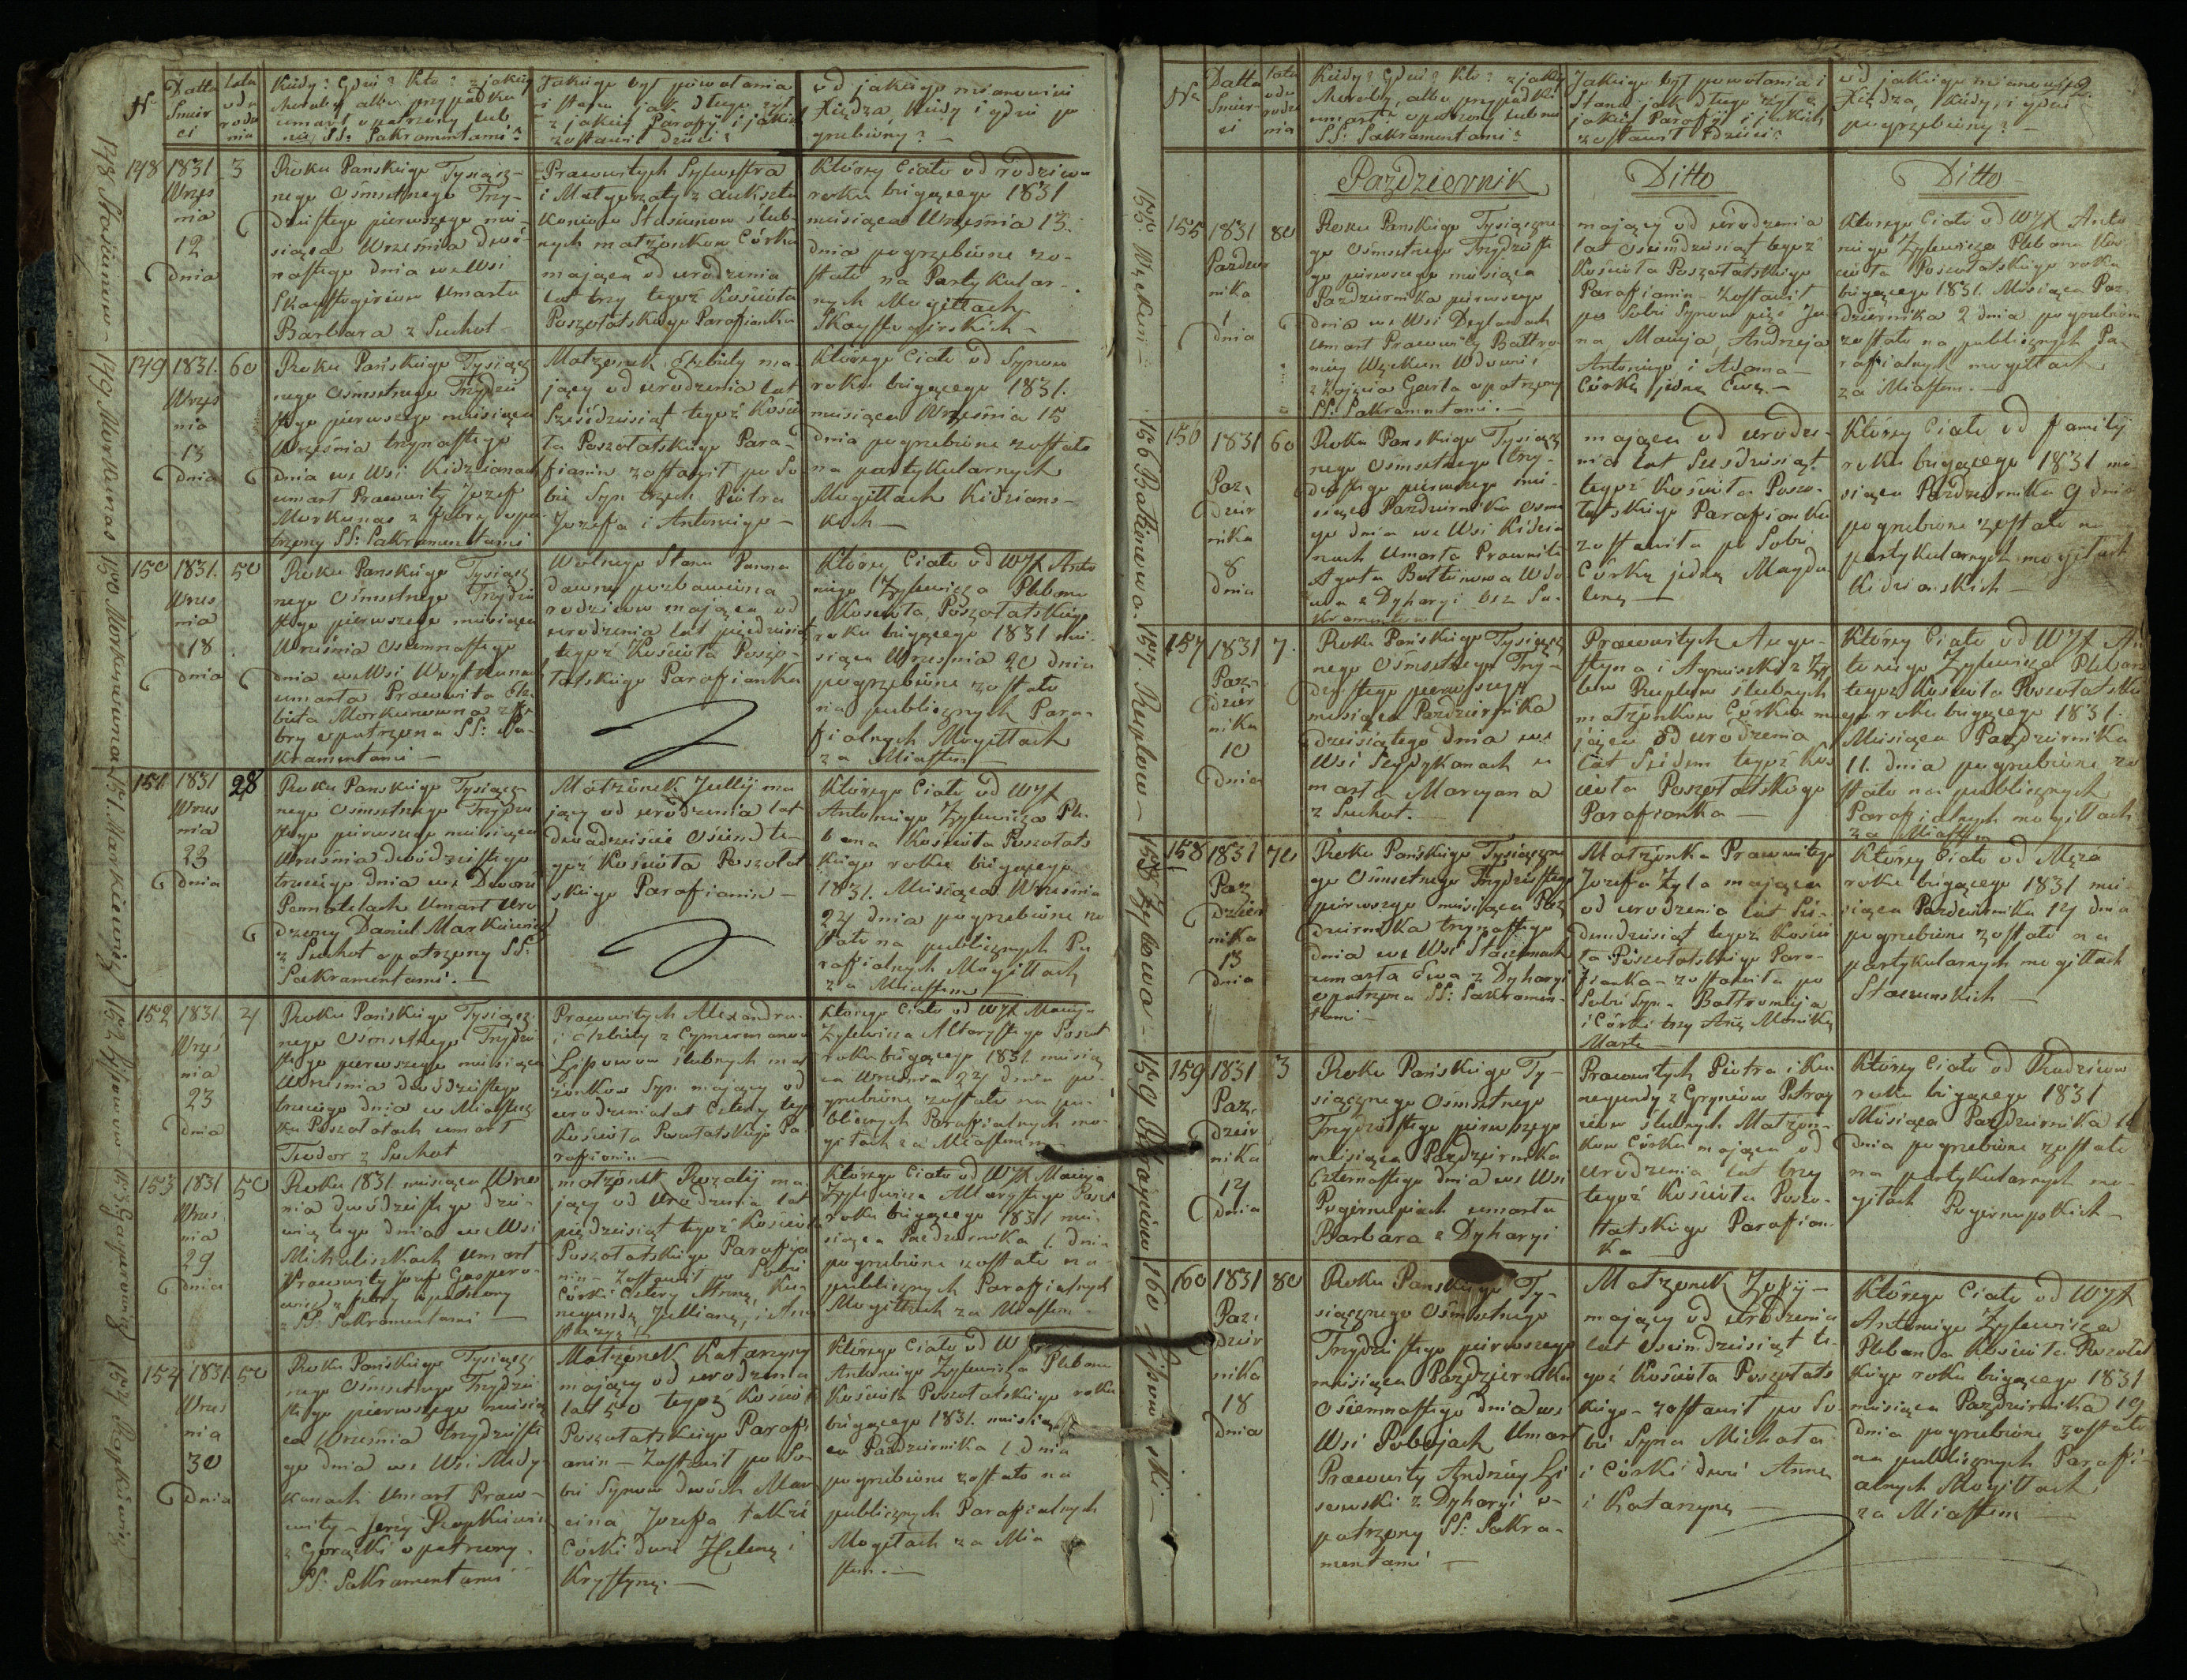 N
Datta Smier ci
lata odu rodze nia
Kiedy? Gdzie? Kto? z jakiey
choroby albo przypadku
umarł opatrzony lub
nie SS: Sakramentami?
Jakiego był powołania
i stanu jak długo żył
z jakiey Parafij i jakie
zostawił dzieci?
od jakiego mianowicie
Xiędza, kiedy i gdzie po
grzebiony?
148 Stasiunow
148
1831
Wrześ
nia
12
dnia
3
Roku Panskiego Tysiącz-
nego Ośmsetnego Trzy-
dziestego pierwszego mie-
siąca Września dwó-
nastego dnia we Wsi
Skaystogiriow Umarła
Barbara z Suchot
Prawowitych Sylwestra
i Małgorzaty z
Stasiunow ślub-
nych małżonkow Córka
mająca od urodzenia
lat trzy tegoż Kościoła
Poszołatskiego Parafianka
Którey Ciało od rodziców
roku bieżącego 1831
miesiąca Września 13.
dnia pogrzebione zo-
stało na Partykular-
nych Mogiłłach
Skaystogirskich
149. Morkunas
149
1831.
Wrześ
nia
13
dnia
60
Roku Pańskiego Tysiącz
nego Ośmsetnego Trzydzie
stego pierwszego miesiąca
Września trzynastego
dnia we Wsi Kidzianach
umarł Prawowity Jozef
Morkunas z febry opa-
trzony SS: Sakramentami
Małżonek Elżbiety ma-
jący od urodzenia lat
Sześćdziesiąt tegoż Kościo
ła Poszołatskiego Para-
fianin zostawił po So
bie Syn trzech Piotra
Jozefa i Antoniego
Którego Ciało od Synow
roku bieżącego 1831.
miesiąca Września 15
dnia pogrzebione zostało
na partykularnych
Mogiłłach Kidzians-
kich
150 Morkunowna
150
1831.
Wrześ
nia
18
dnia
50
Roku Panskiego Tysiącz
nego Ośmsetnego Trzydzie
stego pierwszego miesiąca
Września Osiemnastego
dnia we Wsi
umarła Prawowita Elż-
bieta Morkunowna z fe-
bry opatrzona SS: Sa-
kramentami
Wolnego Stanu Panna
dawno pozbawiona
rodzicow mająca od
urodzenia lat pięćdziesiąt
tegoż Kościoła Poszo-
łatskiego Parafianka
Którey Ciało od WJX Anto
niego Zylewicza Plebana
Kościoła Poszołatskiego
roku bieżącego 1831 mie-
siąca Września 20 dnia
pogrzebione zostało
na publicznych Para-
fialnych Mogiłłach
za Miastem
151. Markiewicz
151
1831
Wrześ
nia
23
dnia
28
Roku Panskiego Tysiącz-
nego Ośmsetnego Trzydzie
stego pierwszego miesiąca
Września dwódziestego
trzeciego dnia we Dworze
Umarł Uro
dzony Daniel Markiewicz
z Suchot opatrzony SS:
Sakramentami.
Małżonek Jullij ma
jący od urodzenia lat
dwadzieście Ośim te-
goż Kościoła Poszołat
skiego Parafianin
Którego Ciało od WJX
Antoniego Zylewicza Ple
bana Kościoła Poszołats
kiego roku bieżącego
1831. Miesiąca Września
24 dnia pogrzebione zo
stało na publicznych Pa
rafialnych Mogiłłach
za Miastem
152 Lissowow
152
1831.
Wrześ
nia
23
dnia
4
Roku Pańskiego Tysiącz
nego Ośmsetnego Trzydzie
stego pierwszego miesiąca
Września dwódziestego
trzeciego dnia w Miastecz
ku Poszołatach umarł
Teodor z Suchot
Prawowitych Alexandra
i Elzbiety z Cymermanow
Lissowow ślubnych mał
żonkow Syn mający od
urodzenia lat Cztery tegoż
Kościoła Poszołatskiego Pa
rafianin
Którego Ciało od WJX Macieja
Zylewicza Altarzystego Poszoł
roku bieżącego 1831 miesią
ca Września 24 dnia po-
grzebione zostało na pu-
blicznych Parafialnych mo-
giłach za Miastem
153 Gasperowicz
153
1831
Wrześ
nia
29
dnia
50
Roku 1831. miesiąca Wrze
nia dwódziestego dzie-
wiątego dnia we Wsi
Michaliszkach umarł
Prawowity Jozef Gaspero-
wicz z febry opatrzony
SS: Sakramentami
małżonek Rozalij ma
jący od Urodzenia lat
pięćdziesiąt tegoż Kościoła
Poszołatskiego Parafia
nin- zostawił po Sobie
Córki Cztery Annę, Ku-
negundę Jullianę, i
Którego Ciało od WJX Macieja
Zylewicza Altarystego Poszoł
roku bieżącego 1831 mie-
siąca Pazdziernika 1. dnia
pogrzebione zostało na
publicznych Parafialnych
Mogiłłach za Miastem
154 Rapkiewicz
154
1831
Wrześ
nia
30
dnia
50
Roku Pańskiego Tysiącz
nego Ośmsetnego Trzydzie
stego pierwszego miesią
ca Września trzydzieste
go dnia we Wsi Medy-
kanach Umarł Prawo-
wity Jerzy Rapkiewicz
z Gorączki opatrzony
SS: Sakramentami
Małżonek Katarzyny
mający od urodzenia
lat 50 tegoż Kościoł
Poszołatskiego Parafi
anin - Zostawił po So-
bie Synow dwóch Mar
cina Jozefa także
Córki dwie Helenę i
Krystynę.
Którego Ciało od W
Antoniego Zylewicza Plebana
Kościoła Poszołatskiego roku
bieżącego 1831. miesią
ca Pazdziernika 1 dnia
pogrzebione zostało na
publicznych Parafialnych
Mogiłach za Mia
stem.
N
Datta Smier ci
lata odu rodze nia
Kiedy? Gdzie? Kto? z jakiey
choroby, albo przypadku
umarł opatrzony lub nie
SS: Sakramentami?
Jakiego był powołania i
Stanu jak długo żył z
jakiey Parafij i jakich
zostawił Dzieci?
od jakiego mianowicie
Xiędza, kiedy, i gdzie
pogrzebiony?
Pazdziernik
Ditto
Ditto
155
1831
Pazdzier
nika
1
dnia
80
Roku Panskiego Tysiączne
go Ośmsetnego Trzydzieste
go pierwszego miesiąca
Pazdziernika pierwszego
dnia we Wsi Deglanach
Umarł Prawowity Bałtro-
miey Węckun Wdowiec
opatrzony
SS: Sakramentami.
mający od urodzenia
lat Ośiemdziesiąt tegoż
Kościoła Poszołatskiego
Parafianin - Zostawił
po Sobie Synow pięć Ja-
na, Macieja, Andrzeja
Antoniego i Adama
Córkę jedną Ewę.
Ktorego Ciało od WJX Anto
niego Zylewicza Plebana Koś
cioła Poszołatskiego roku
bieżącego 1831. Miesiąca Paz-
dziernika 2 dnia pogrzebione
zostało na publicznych Pa
rafialnych mogiłłach
za Miastem.
156 Bałtinowa.
156
1831
Paz-
dzier
nika
8
dnia
60
Roku Panskiego Tysiącz
nego Ośmsetnego trzy-
dziestego pierwszego mie-
siąca Pazdziernika Osme
go dnia we Wsi Kidzia
nach Umarła Prawowita
Agata Bałtinowa Wdo
wa z Dyharyi bez Sa-
kramentow
mająca od urodze-
nia lat Sześdziesiąt
tegoż Kościoła Poszo-
łatskiego Parafianka
zostawiła po Sobie
Córkę jedną Magda
lenę
Którey Ciało od familij
roku bieżącego 1831 mie
siąca Pazdziernika 9 dnia
pogrzebione zostało na
partykularnych mogiłach
Kidzianskich
157. Ruplow
157
1831
Paz-
dzier
nika
10
dnia
7.
Roku Pańskiego Tysiącz
nego Ośmsetnego Trzy-
dziestego pierwszego
miesiąca Pazdziernika
dziesiątego dnia we
Wsi u
marła Maryana
z Suchot.
Prawowitych Augu-
styna i Agnieszki z
Ruplow ślubnych
małżonkow Córka ma
jąca od urodzenia
lat Siedem tegoż Koś
cioła Poszołatskiego
Parafianka
Którey Ciało od WJX An
toniego Zylewicza Pleban
tegoż Kościoła Poszołatskie
go roku bieżącego 1831.
Miesiąca Pazdziernika
11. dnia pogrzebione zo
stało na publicznych
Parafialnych mogiłłach
za Miastem
158 Zylowa
158
1831
Paz
dzier
nika
13
dnia
70
Roku Pańskiego Tysiączne
go Ośmsetnego Trzydziestego
pierwszego miesiąca Paz
dziernika trzynastego
dnia we Wsi Staciunach
umarła Ewa z Dyharyi
opatrzona SS: Sakramen-
tami
Małżonka Prawowitego
Jozefa Zyla mająca
od urodzenia lat Sie-
demdziesiąt tegoż Kościo
ła Poszołatskiego Para-
fianka - zostawiła po
Sobie Syna Bałtromieja
i Córki trzy Annę Monikę
Martę
Którey Ciało od Męża
roku bieżącego 1831 mie
siąca Pazdziernika 14 dnia
pogrzebione zostało na
partykularnych mogiłłach
Staciunskich
159
159
1831
Paz-
dzier
nika
14
dnia
3
Roku Pańskiego Ty-
siącznego Ośmsetnego
Trzydziestego pierwszego
miesiąca Pazdziernika
Czternastego dnia we Wsi
Pogiernupiach umarła
Barbara z Dyharyi
Prawowitych Piotra i Ku
negundy z Gryniow
ślubnych Małżon-
kow Córka mająca od
urodzenia lat trzy
tegoż Kościoła Poszo-
łatskiego Parafian
ka
Którey Ciało od Rodziców
roku bieżącego 1831
Miesiąca Pazdziernika
dnia pogrzebione zostało
na partykularnych mo-
giłach Pogiernupskich
160
160
1831
Paz-
dzier
nika
18
dnia
80
Roku Panskiego Ty-
siącznego Ośmsetnego
Trzydziestego pierwszego
miesiąca Pazdziernika
Ośiemnastego dnia we
Wsi Pobojach Umarł
Prawowity Andrzey Li
sowski z Dyharyi o-
patrzony SS: Sakra-
mentami
Małżonek Zofij
mający od Urodzenia
lat Osiemdziesiąt te-
goż Kościoła Poszołats
kiego - zostawił po So
bie Syna Michała
i Córki dwie Annę
i Katarzynę
Którego Ciało od WJX
Antoniego Zylewicza
Plebana Kościoła Poszołat
kiego roku bieżącego 1831
miesiąca Pazdziernika 19
dnia pogrzebione zostało
na publicznych Parafi-
alnych Mogiłłach
za Miastem